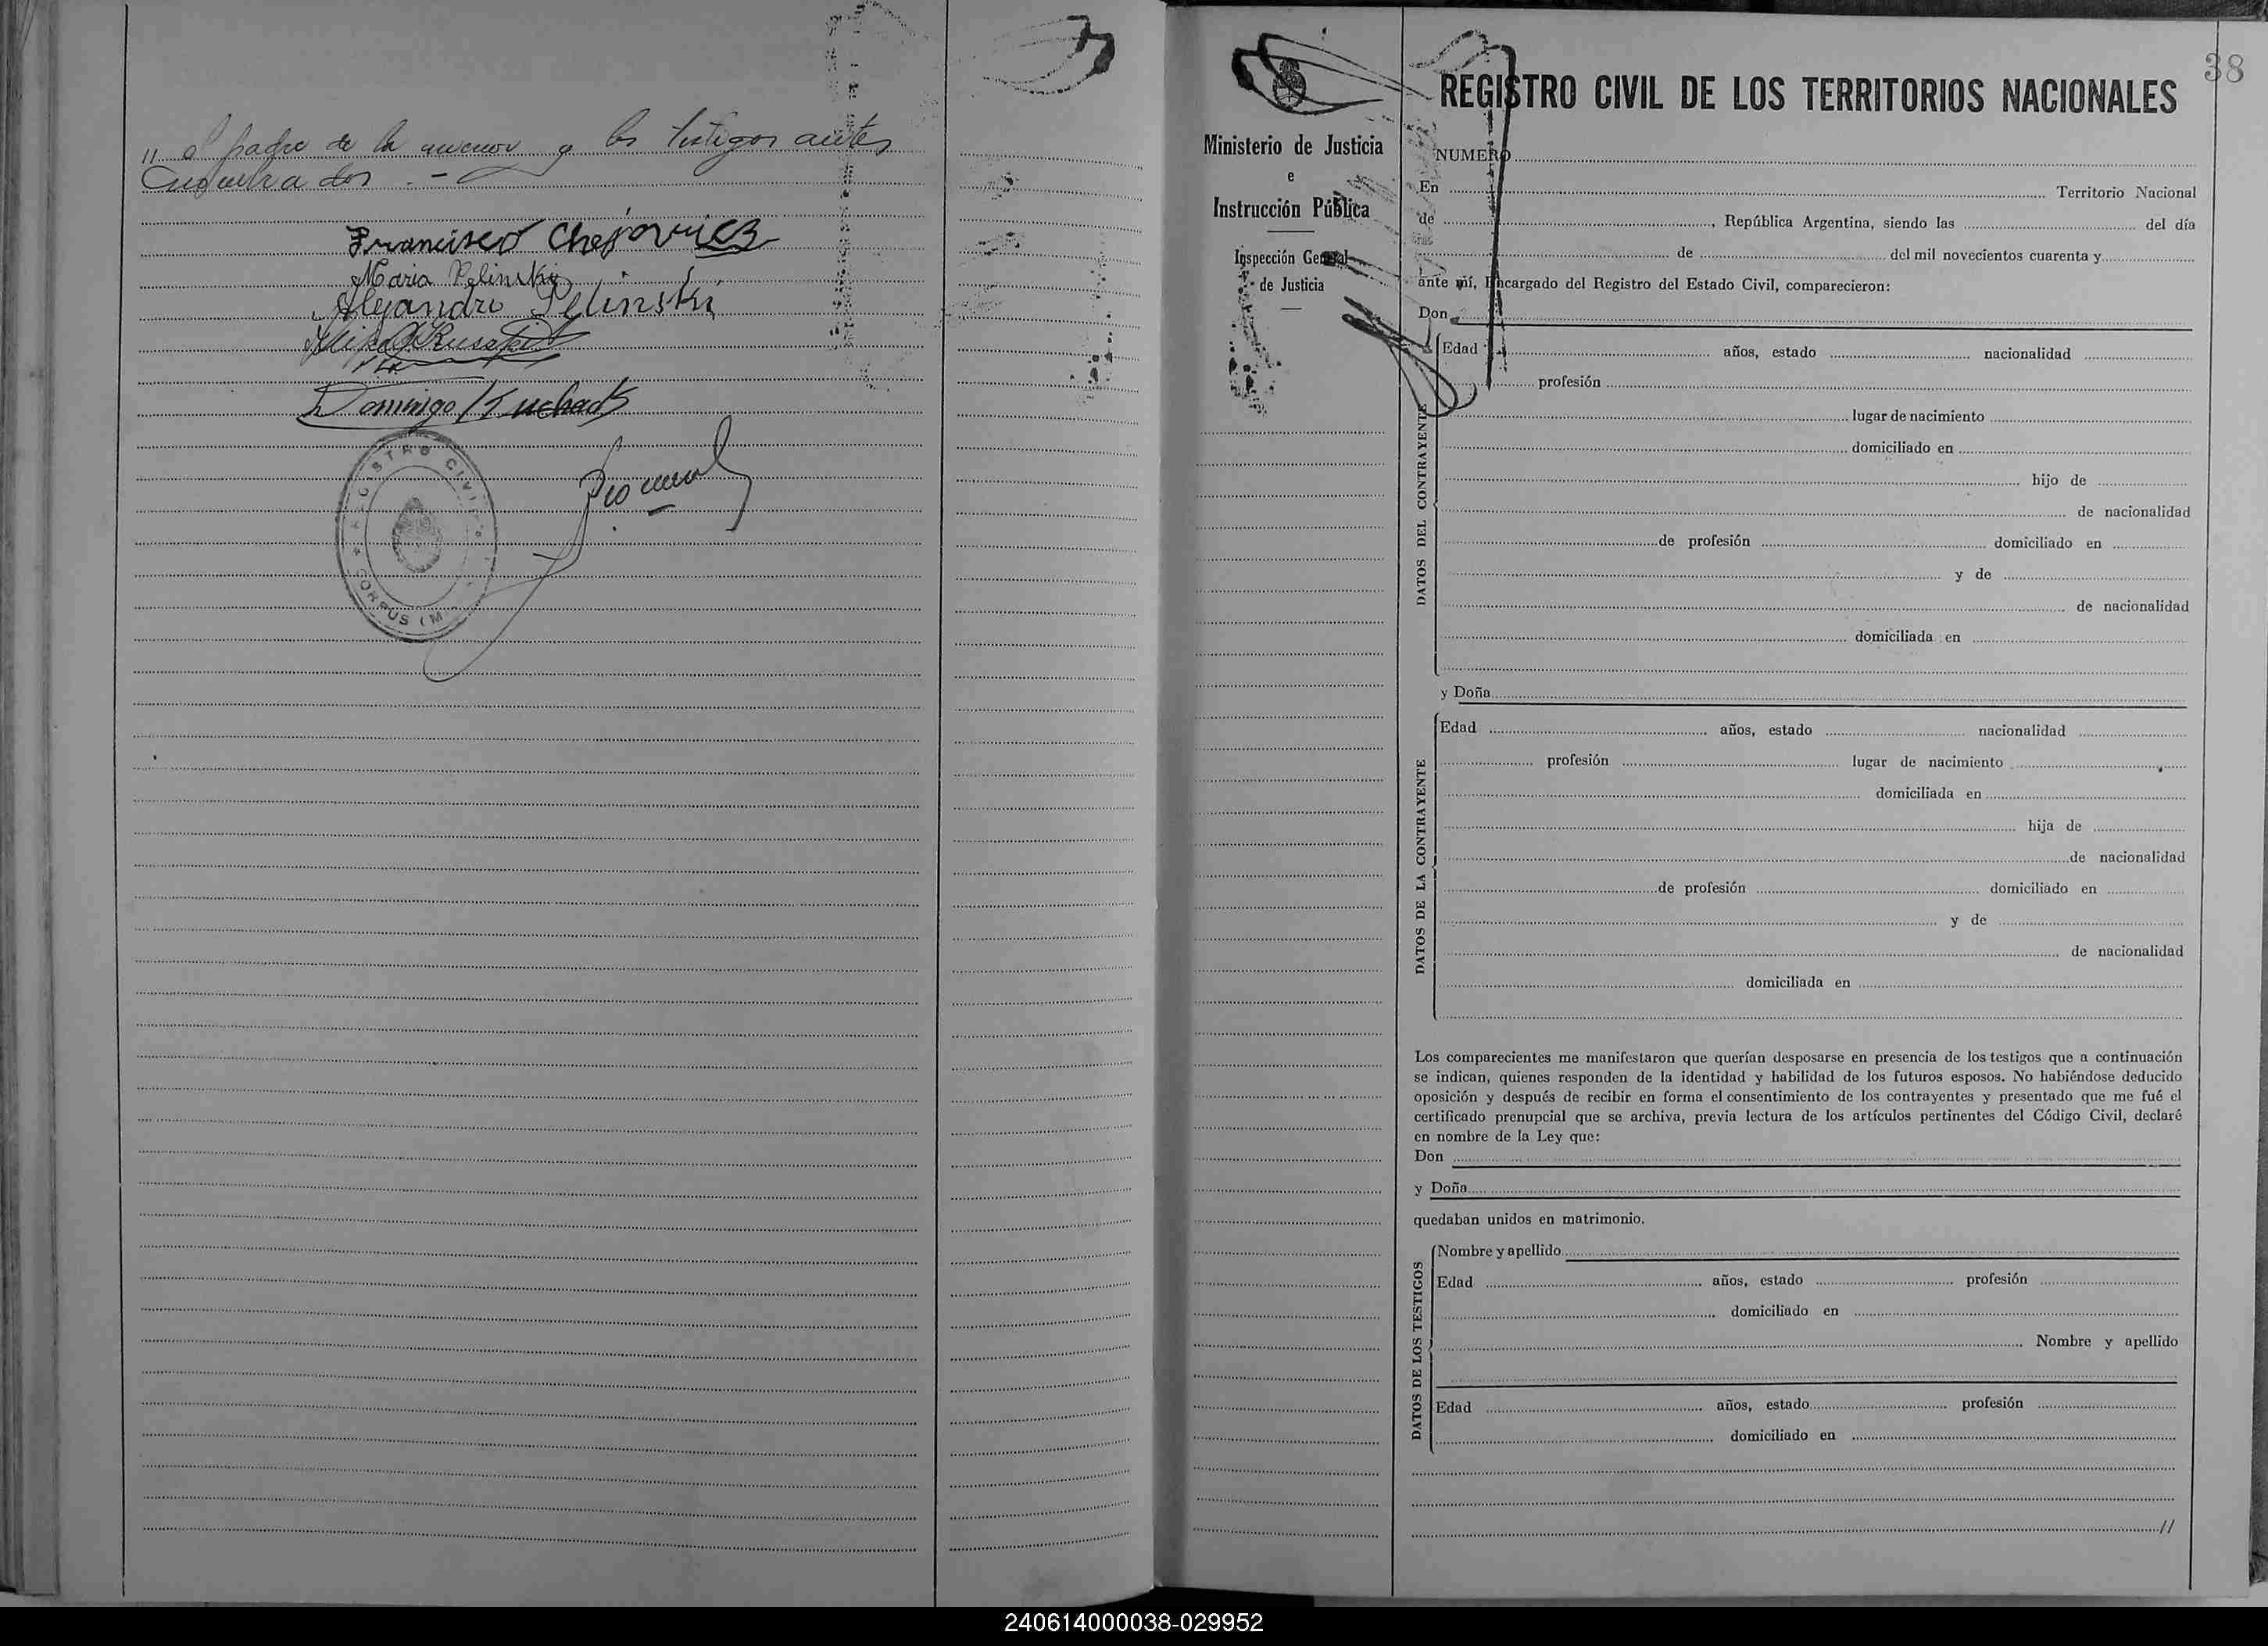 // el padre de la menor y los testigos antes
Francisco Chejovicz
Maria Pelinski
Alejandro Pelinski
Domingo
REGISTRO CIVIL
CORPUS (M
38
REGISTRO CIVIL DE LOS TERRITORIOS NACIONALES
Ministerio de Justicia
e
Instrucción Pública
Inspección General
de Justicia
NUMERO
En Territorio Nacional
de , República Argentina, siendo las del día
de del mil novecientos cuarenta y
ante mí, Encargado del Registro del Estado Civil, comparecieron:
Don
DATOS DEL CONTRAYENTE
Edad años, estado nacionalidad
profesión
lugar de nacimiento
domiciliado en
hijo de
de nacionalidad
de profesión domiciliado en
y de
de nacionalidad
domiciliada en
y Doña
DATOS DE LA CONTRAYENTE
Edad años, estado nacionalidad
profesión lugar de nacimiento
domiciliada en
hija de
de nacionalidad
de profesión domiciliado en
y de
de nacionalidad
domiciliada en
Los comparecientes me manifestaron que querían desposarse en presencia de los testigos que a continuación
se indican, quienes responden de la identidad y habilidad de los futuros esposos. No habiéndose deducido
oposición y después de recibir en forma el consentimiento de los contrayentes y presentado que me fué el
certificado prenupcial que se archiva, previa lectura de los artículos pertinentes del Código Civil, declaré
en nombre de la Ley que:
Don
y Doña
quedaban unidos en matrimonio.
DATOS DE LOS TESTIGOS
Nombre y apellido
Edad años, estado profesión
domiciliado en
Nombre y apellido
Edad años, estado profesión
domiciliado en
//
240614000038-029952